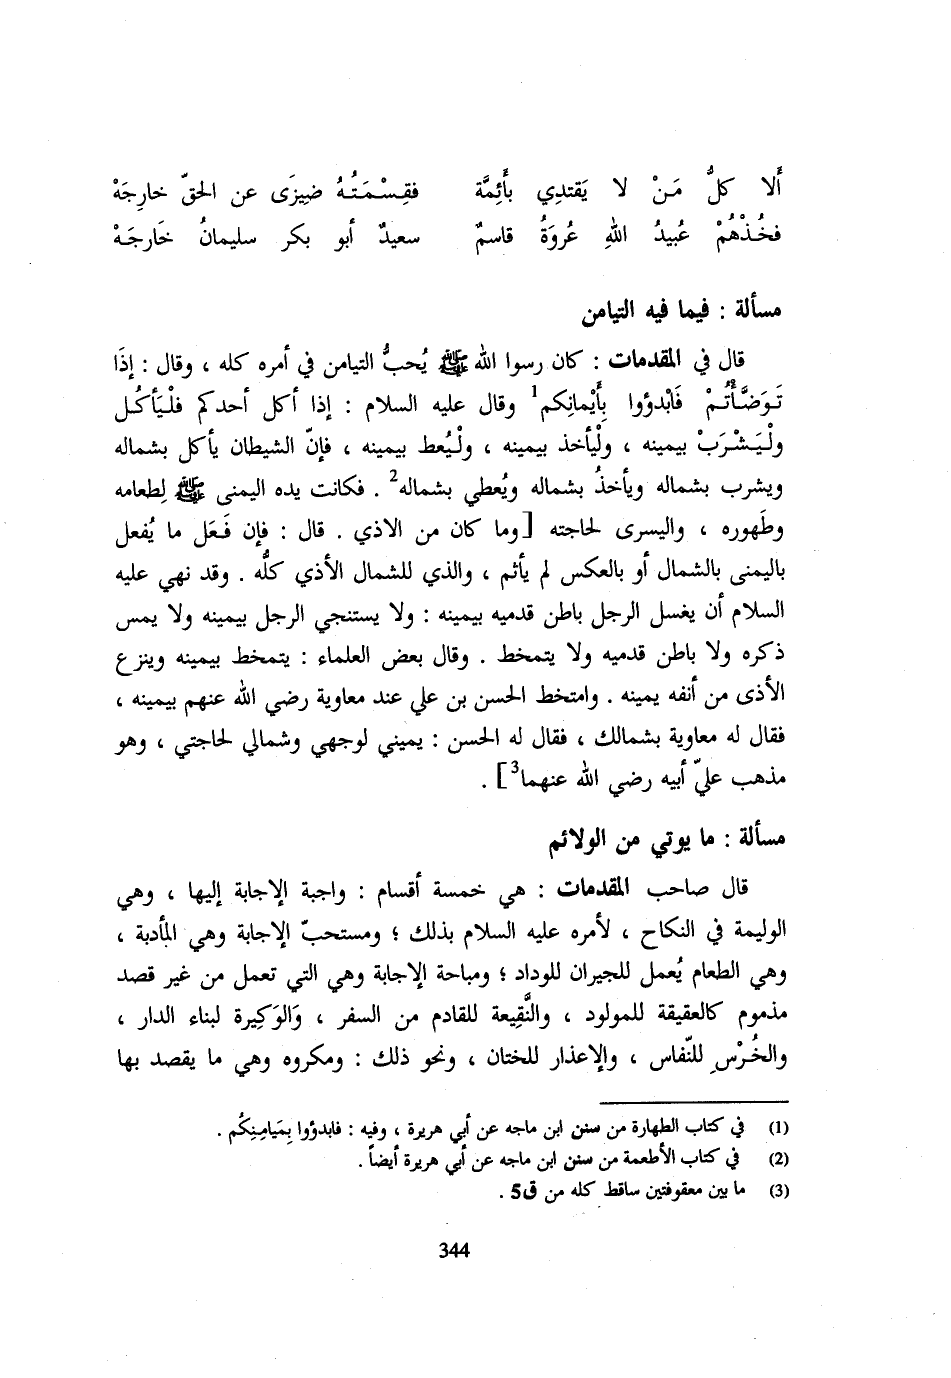 أَلا كلُّ مَنْ لا يَقتدِي بأَئِمَّة    فقِسْمَتُهُ ضِيزَى عن الحقّ خارِجَهْ
فخُذْهُمْ عُبيدُ اللهِ عُروَةُ قاسمٌ    سعيدٌ أبو بكر سليمانُ خَارجَهْ
مسألة : فيما فيه التيامن
قال في المقدمات : كان رسوا الله ﷺ يُحبُّ التيامن في أمره كله ، وقال : إذَا
تَوَضَّأْتُمْ فَابْدؤوا بِأَيْمانِكم1 وقال عليه السلام : إذا أكل أحدكم فلْيَأكُل
ولْيَشْرَبْ بيمينه ، ولْيأخذ بيمينه ، ولْيُعط بيمينه ، فإنّ الشيطان يأكل بشماله
ويشرب بشماله ويأخذُ بشماله ويُعطي بشماله2 . فكانت يده اليمنى ﷺ لِطعامه
وطَهوره ، واليسرى لحاجته [وما كان من الاذي . قال : فإن فَعَل ما يُفعل
باليمنى بالشمال أو بالعكس لم يأثم ، والذي للشمال الأذي كلُّه . وقد نهي عليه
السلام أن يغسل الرجل باطن قدميه بيمينه : ولا يستنجي الرجل بيمينه ولا يمس
ذكره ولا باطن قدميه ولا يتمخط . وقال بعض العلماء : يتمخط بيمينه وينزع
الأذى من أنفه يمينه . وامتخط الحسن بن علي عند معاوية رضي الله عنهم بيمينه ،
فقال له معاوية بشمالك ، فقال له الحسن : يميني لوجهي وشمالي لحاجتي ، وهو
مذهب عليّ أبيه رضي الله عنهما3] .
مسألة : ما يوتي من الولائم
قال صاحب المقدمات : هي خمسة أقسام : واجبة الإجابة إليها ، وهي
الوليمة في النكاح ، لأمره عليه السلام بذلك ؛ ومستحبّ الإجابة وهي المأدبة ،
وهي الطعام يُعمل للجيران للوداد ؛ ومباحة الإجابة وهي التي تعمل من غير قصد
مذموم كالعقيقة للمولود ، والنَّقِيعة للقادم من السفر ، وَالوَكِيرة لبناء الدار ،
والخُرْسِ للنّفاس ، والإعذار للختان ، ونحو ذلك : ومكروه وهي ما يقصد بها
(1) في كتاب الطهارة من سنن ابن ماجه عن أبي هريرة ، وفيه : فابدؤوا بِمَيامِنِكُم .
(2) في كتاب الأطعمة من سنن ابن ماجه عن أبي هريرة أيضاً .
(3) ما بين معقوفتين ساقط كله من ق5 .
344